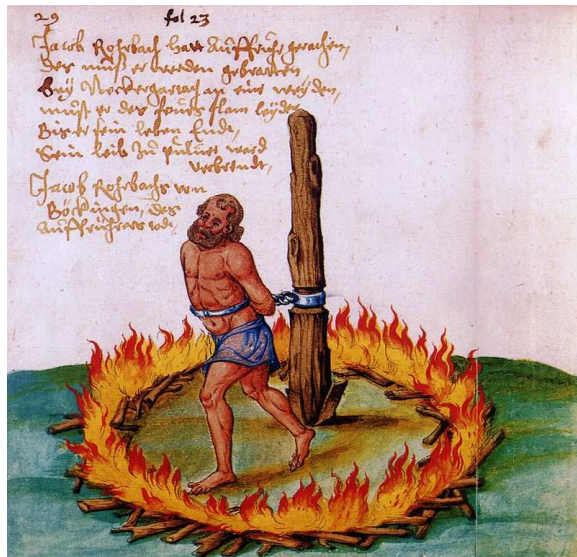 29 fol 23
Jacob Rohrbach hatt Auffruhr gerathen,
des muß er werden gebratten,
bey Neckergartach an eine weyden,
mußt er des feurs flam leyden
Bis er sein leben Endt,
Sein leib zu pulver ward
verbrendt,
Jacob Rohrbachs von
Böckingen, des
auffrührers todt,